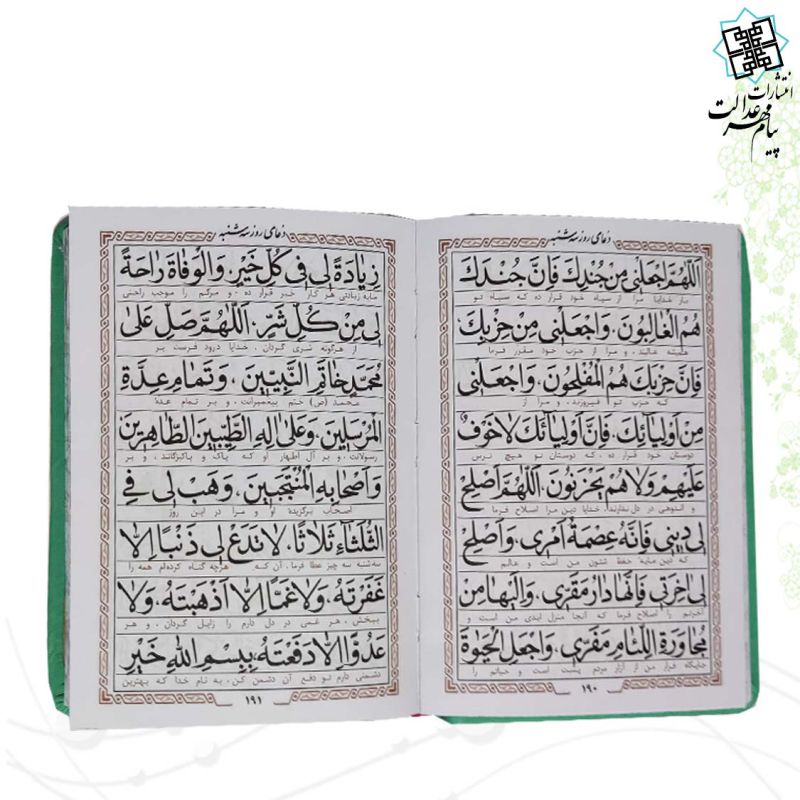 انتشارات
پیام مهر عدالت
دعای روز سه شنبه
اَللّٰهُمَّ اجْعَلْنی مِنْ جُنْدِكَ فَاِنَّ جُنْدَكَ
بار خدایا مرا از سپاه خود قرار ده که سپاه تو
هُمُ الْغالِبُونَ، وَاجْعَلْنی مِنْ حِزْبِكَ
همیشه غالبند، و مرا از حزب خود مقرر فرما
فَاِنَّ حِزْبَكَ هُمُ الْمُفْلِحُونَ، وَاجْعَلْنی
که حزب تو فیروزند، و مرا از
مِنْ اَوْلِیآئِكَ، فَاِنَّ اَوْلِیآئَكَ لاخَوْفٌ
دوستان خود قرار ده، که دوستان تو هیچ ترس
عَلَیْهِمْ وَلاهُمْ یَحْزَنُونَ، اَللّٰهُمَّ اَصْلِحْ
و اندوهی در دل ندارند، خدایا دین مرا اصلاح فرما
لی دینی فَاِنَّهُ عِصْمَةُ اَمْری، وَاَصْلِحْ
که دین مایه حفظ شئون من است و عالم
لی اخِرَتی فَاِنَّها دارُ مَقَرّی، وَاِلَیْها مِنْ
آخرتم را اصلاح فرما که آنجا منزل ابدی من است و
مُجاوَرَةِ اللِّئامِ مَفَرّی، وَاجْعَلِ الْحَیٰوةَ
جایگاه فرار من از آزار مردم پست است و حیاتم را
۱۹۰
دعای روز سه شنبه
زِیادَةً لی فی كُلِّ خَیْرٍ، وَالْوَفاةَ راحَةً
مایه زیادتی هر کار خیر قرار ده - و مرگم را موجب راحتی
لی مِنْ كُلِّ شَرٍّ، اَللّٰهُمَّ صَلِّ عَلیٰ
از هرگونه شری گردان، خدایا درود فرست بر
مُحَمَّدٍ خاتَمِ النَّبِیّینَ، وَتَمامِ عِدَّةِ
محمد (ص) ختم پیغمبرانت، و بر تمام عده
الْمُرْسَلینَ، وَعَلیٰ الِهِ الطَّیِّبینَ الطّاهِرینَ
رسولانت، و بر آل اطهار او که پاک و پاکیزگانند، و بر
وَاَصْحابِهِ الْمُنْتَجَبینَ، وَهَبْ لی فِی
اصحاب برگزیده او و مرا در این روز
الثُّلَثآءِ ثَلاثًا، لاتَدَعْ لی ذَنْبًا اِلّا
سه‌شنبه سه چیز عطا فرما، آن که هرچه گناه کرده‌ام همه را
غَفَرْتَهُ، وَلاغَمًّا اِلّا اَذْهَبْتَهُ، وَلا
ببخش، هر غمی در دل دارم را زایل گردان، و هر
عَدُوًّا اِلّا دَفَعْتَهُ، بِبِسْمِ اللّٰهِ خَیْرِ
دشمنی دارم تو دفع آن دشمن کن، به نام خدا که بهترین
۱۹۱